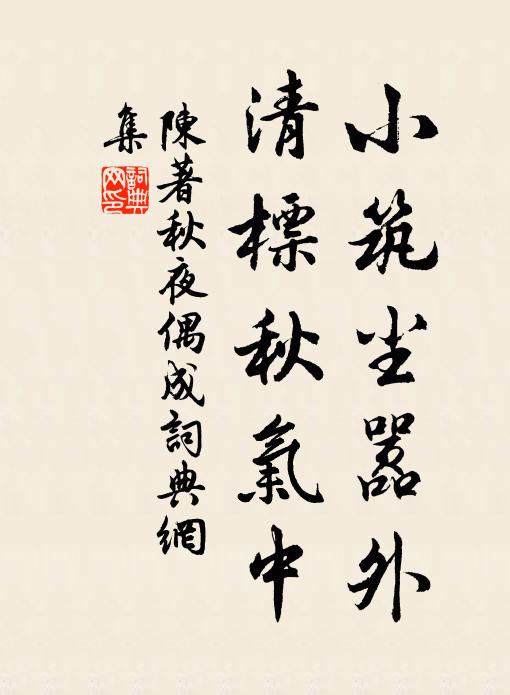 小筑尘嚣外
清標秋氣中
陳著秋夜偶成詞典網
集
詞典
网印